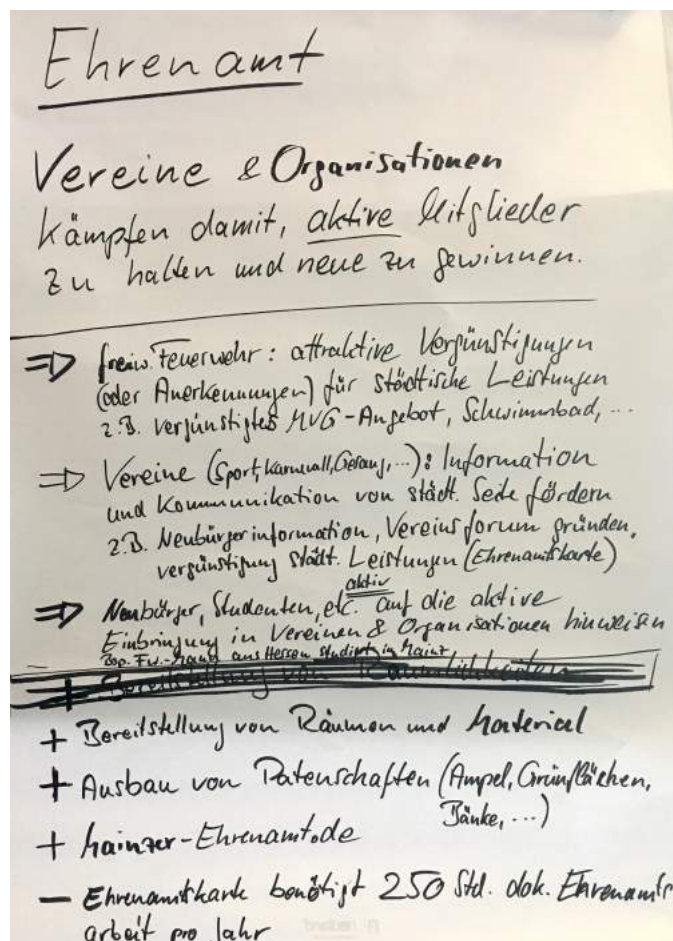 Ehrenamt
Vereine & Organisationen
kämpfen damit, aktive Mitglieder
zu halten und neue zu gewinnen.
⇒ freiw. Feuerwehr: attraktive Vergünstigungen
(oder Anerkennungen) für städtische Leistungen
z.B. vergünstigtes MVG-Angebot, Schwimmbad, ...
⇒ Vereine (Sport, Karnevall, Gesang, ...): Information
und Kommunikation von städt. Seite fördern
z.B. Neubürgerinformation, Vereinsforum gründen,
vergünstigung städt. Leistungen (Ehrenamtskarte)
aktiv
⇒ Neubürger, Studenten, etc. auf die aktive
Einbringung in Vereinen & Organisationen hinweisen
Bsp. Fw.-Mann aus Hessen studiert in Mainz
+ Bereitstellung von Räumlichkeiten
+ Bereitstellung von Räumen und Material
+ Ausbau von Patenschaften (Ampel, Grünflächen,
Bänke, ...)
+ Mainzer-Ehrenamt.de
- Ehrenamtskarte benötigt 250 Std. dok. Ehrenamts
arbeit pro Jahr